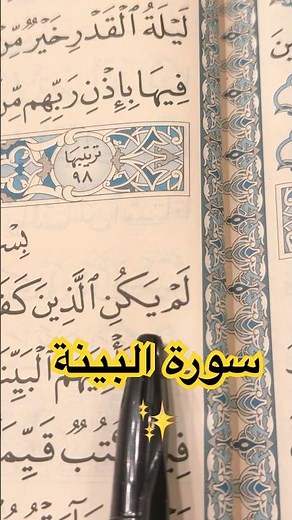 لَيْلَةُ ٱلْقَدْرِ خَيْرٌ مِّنْ
فِيهَا بِإِذْنِ رَبِّهِم مِّن
ترتيبها
٩٨
لَمْ يَكُنِ ٱلَّذِينَ كَفَ
سورة البينة
ٱلْبَيِّنَ
كُتُبٌ قَيِّمَ